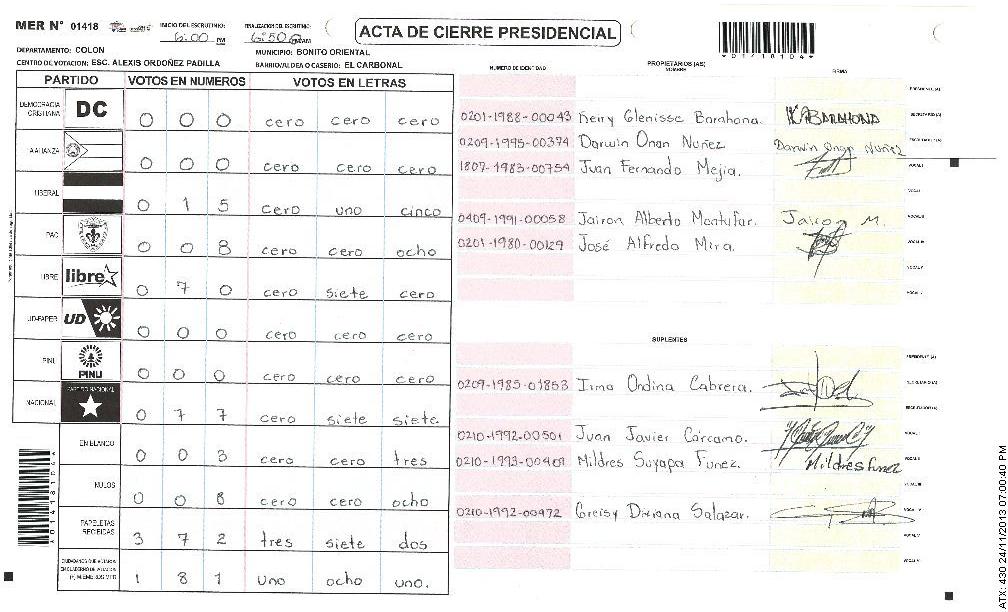 MER N° 01418
INICIO DEL ESCRUTINIO:
6:00 PM
FINALIZACION DEL ESCRUTINIO:
6:50
ACTA DE CIERRE PRESIDENCIAL
*01418104*
DEPARTAMENTO: COLON
MUNICIPIO: BONITO ORIENTAL
CENTRO DE VOTACION: ESC. ALEXIS ORDOÑEZ PADILLA
BARRIO/ALDEA O CASERIO: EL CARBONAL
PARTIDO VOTOS EN NUMEROS VOTOS EN LETRAS
DEMOCRACIA CRISTIANA DC 0 0 0 cero cero cero
ALIANZA 0 0 0 cero cero cero
LIBERAL 0 1 5 cero uno cinco
PAC 0 0 8 cero cero ocho
LIBRE libre 0 7 0 cero siete cero
UD-FAPER UD 0 0 0 cero cero cero
PINU PINU 0 0 0 cero cero cero
NACIONAL PARTIDO NACIONAL 0 7 7 cero siete siete
EN BLANCO 0 0 3 cero cero tres
NULOS 0 0 8 cero cero ocho
PAPELETAS RECIBIDAS 3 7 2 tres siete dos
1 8 1 uno ocho uno.
*01418104*
NUMERO DE IDENTIDAD
PROPIETARIOS (AS)
NOMBRE
FIRMA
PRESIDENTE (A)
0201-1988-00043 Keiry Glenisse Barahona. BARAHONA SECRETARIO (A)
0209-1995-00374 Darwin Onan Nuñez Darwin Onan Nuñez
1807-1983-00754 Juan Fernando Mejia. VOCAL I
VOCAL II
0409-1991-00058 Jairon Alberto Montufar. Jairon M. VOCAL III
0201-1980-00129 José Alfredo Mira.
VOCAL V
SUPLENTES
PRESIDENTE (A)
0209-1985-01853 Irma Ondina Cabrera. SECRETARIO (A)
0210-1992-00501 Juan Javier Cárcamo. VOCAL I
0210-1993-00409 Mildres Suyapa Funez. Mildres Funez VOCAL II
VOCAL III
0210-1992-00472 Greisy Dixiana Salazar.
VOCAL V
ATX: 430 24/11/2013 07:00:40 PM